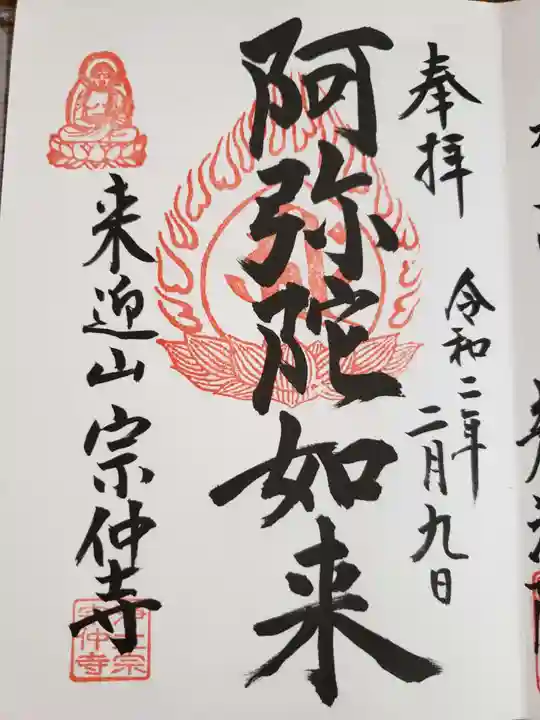 奉拝
令和二年
二月九日
阿弥陀如来
来迎山宗仲寺
浄土宗
宗仲寺